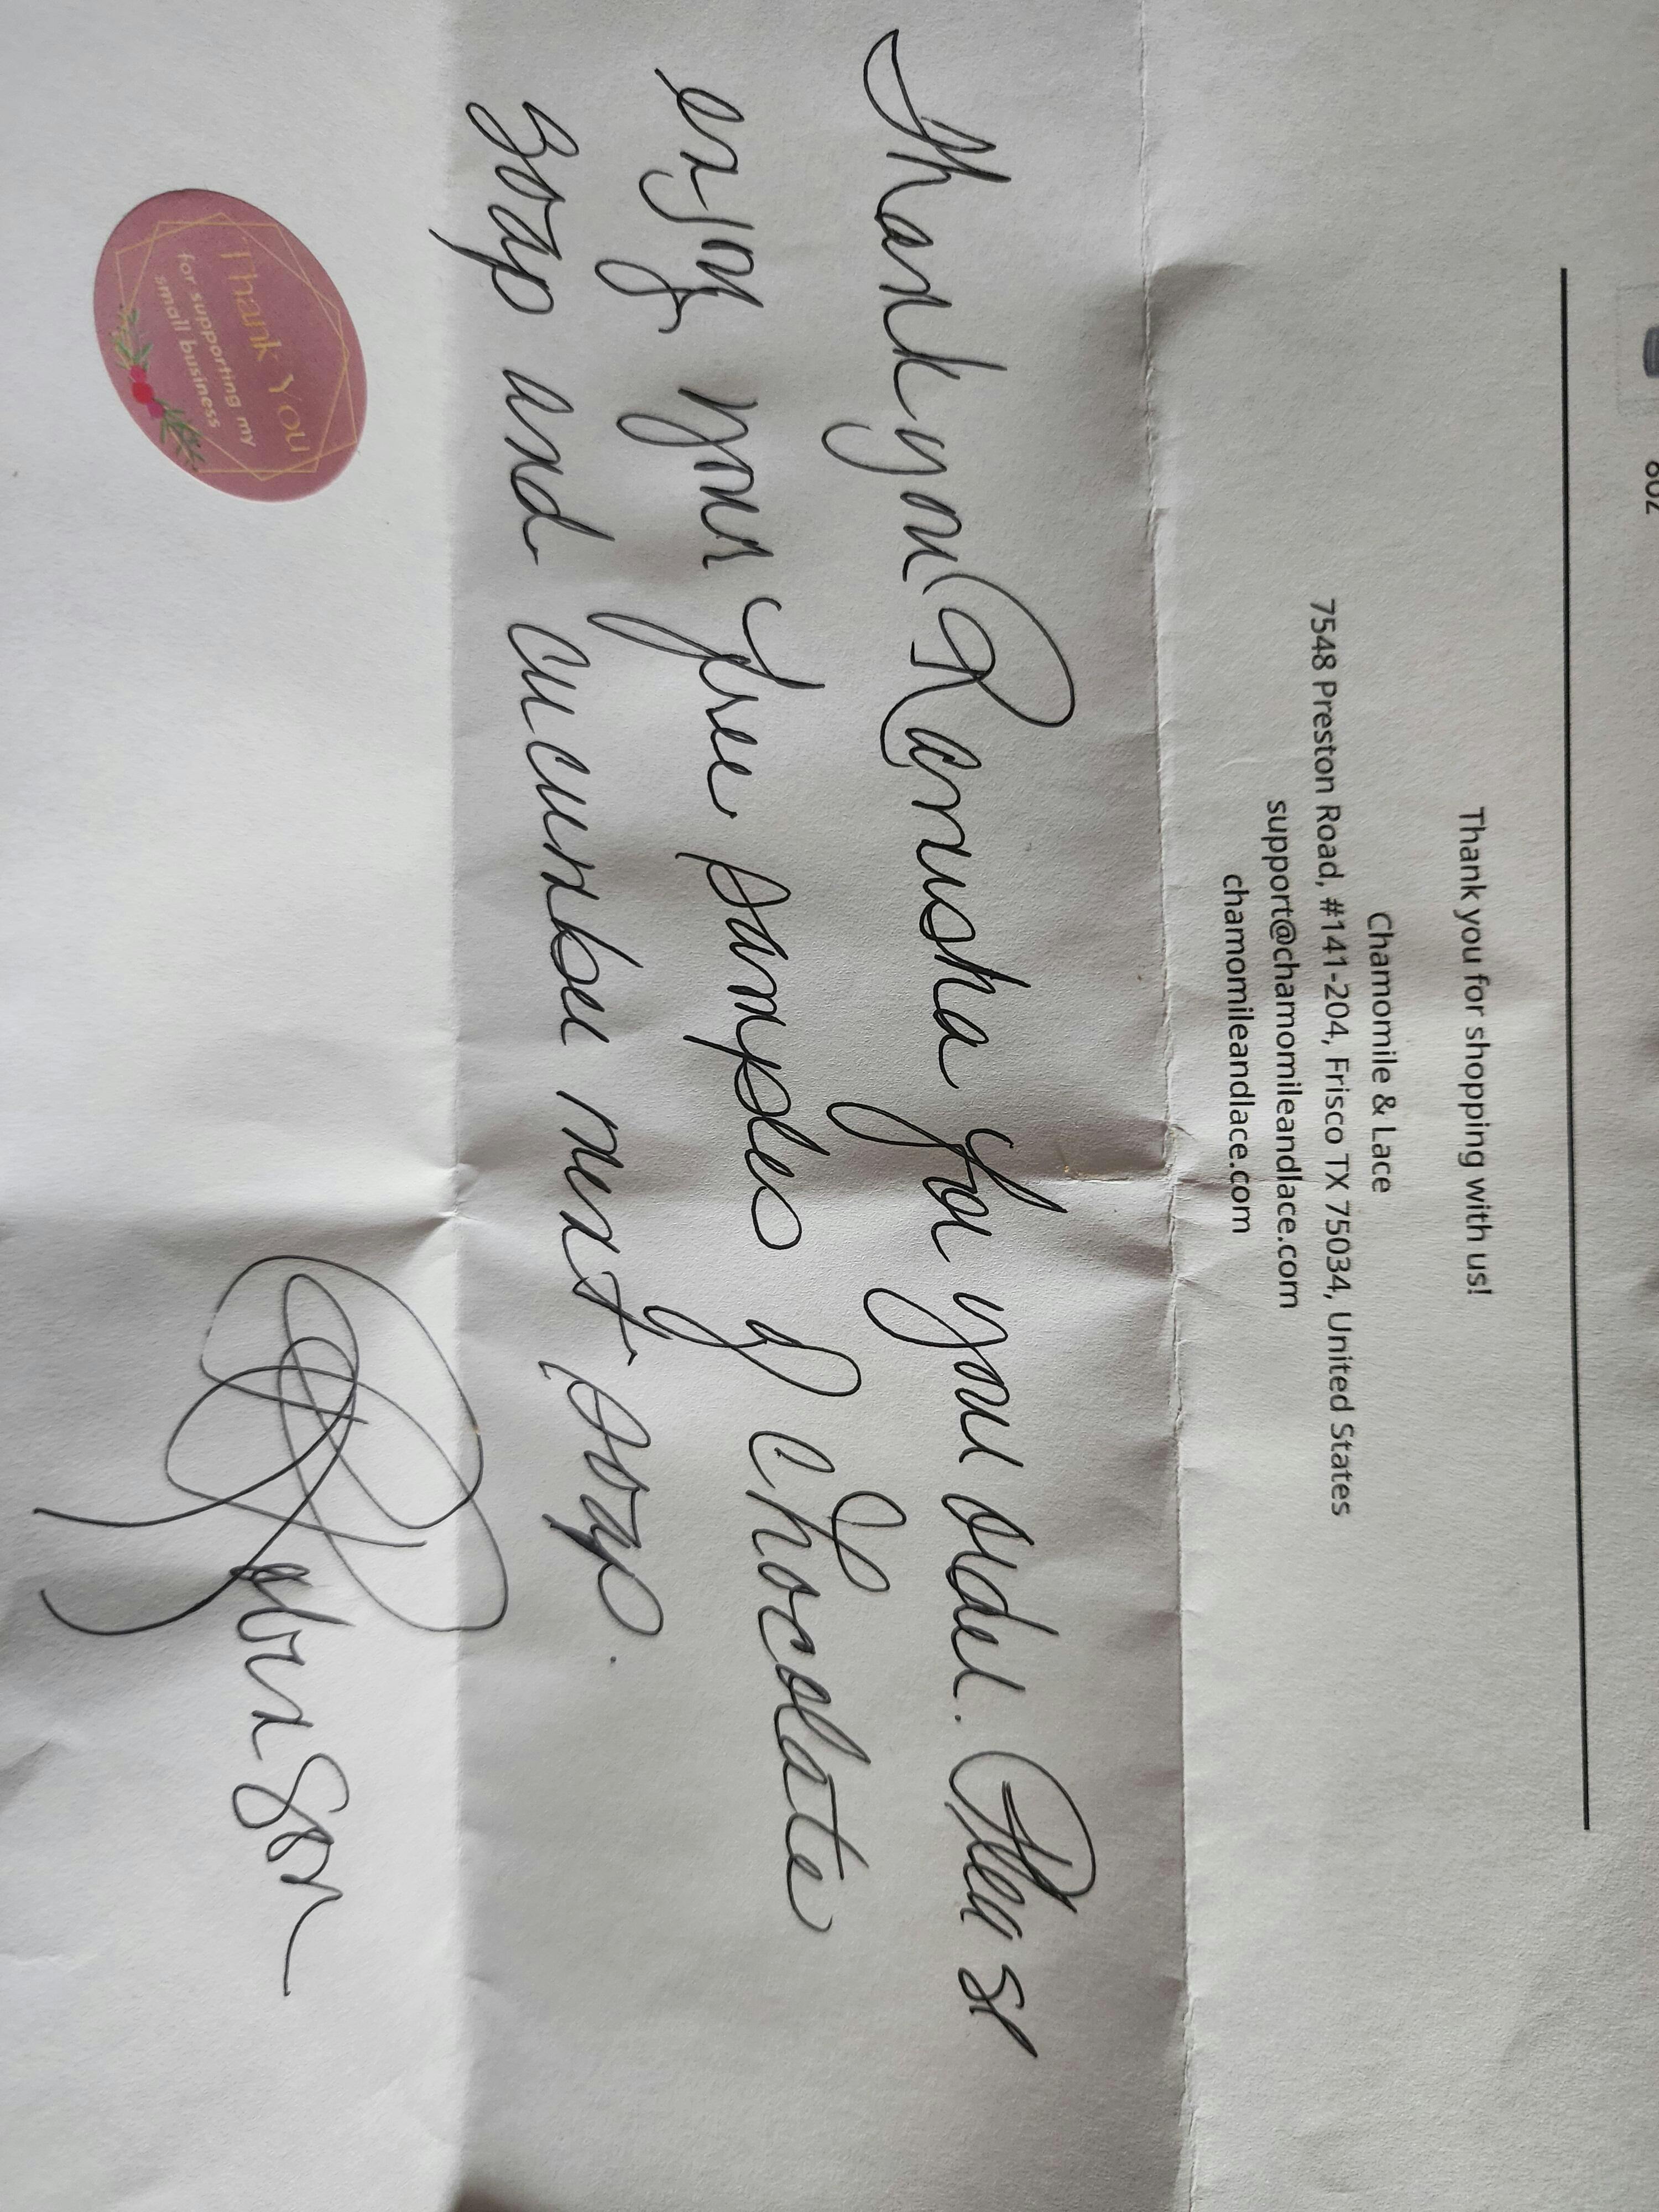 8oz
Thank you for shopping with us!
Chamomile & Lace
7548 Preston Road, #141-204, Frisco TX 75034, United States
support@chamomileandlace.com
chamomileandlace.com
Thank you Ranusha for your order. Please
enjoy your free samples of Chocolate
Soap and cucumber mint soap.
Thank You
for supporting my
small business